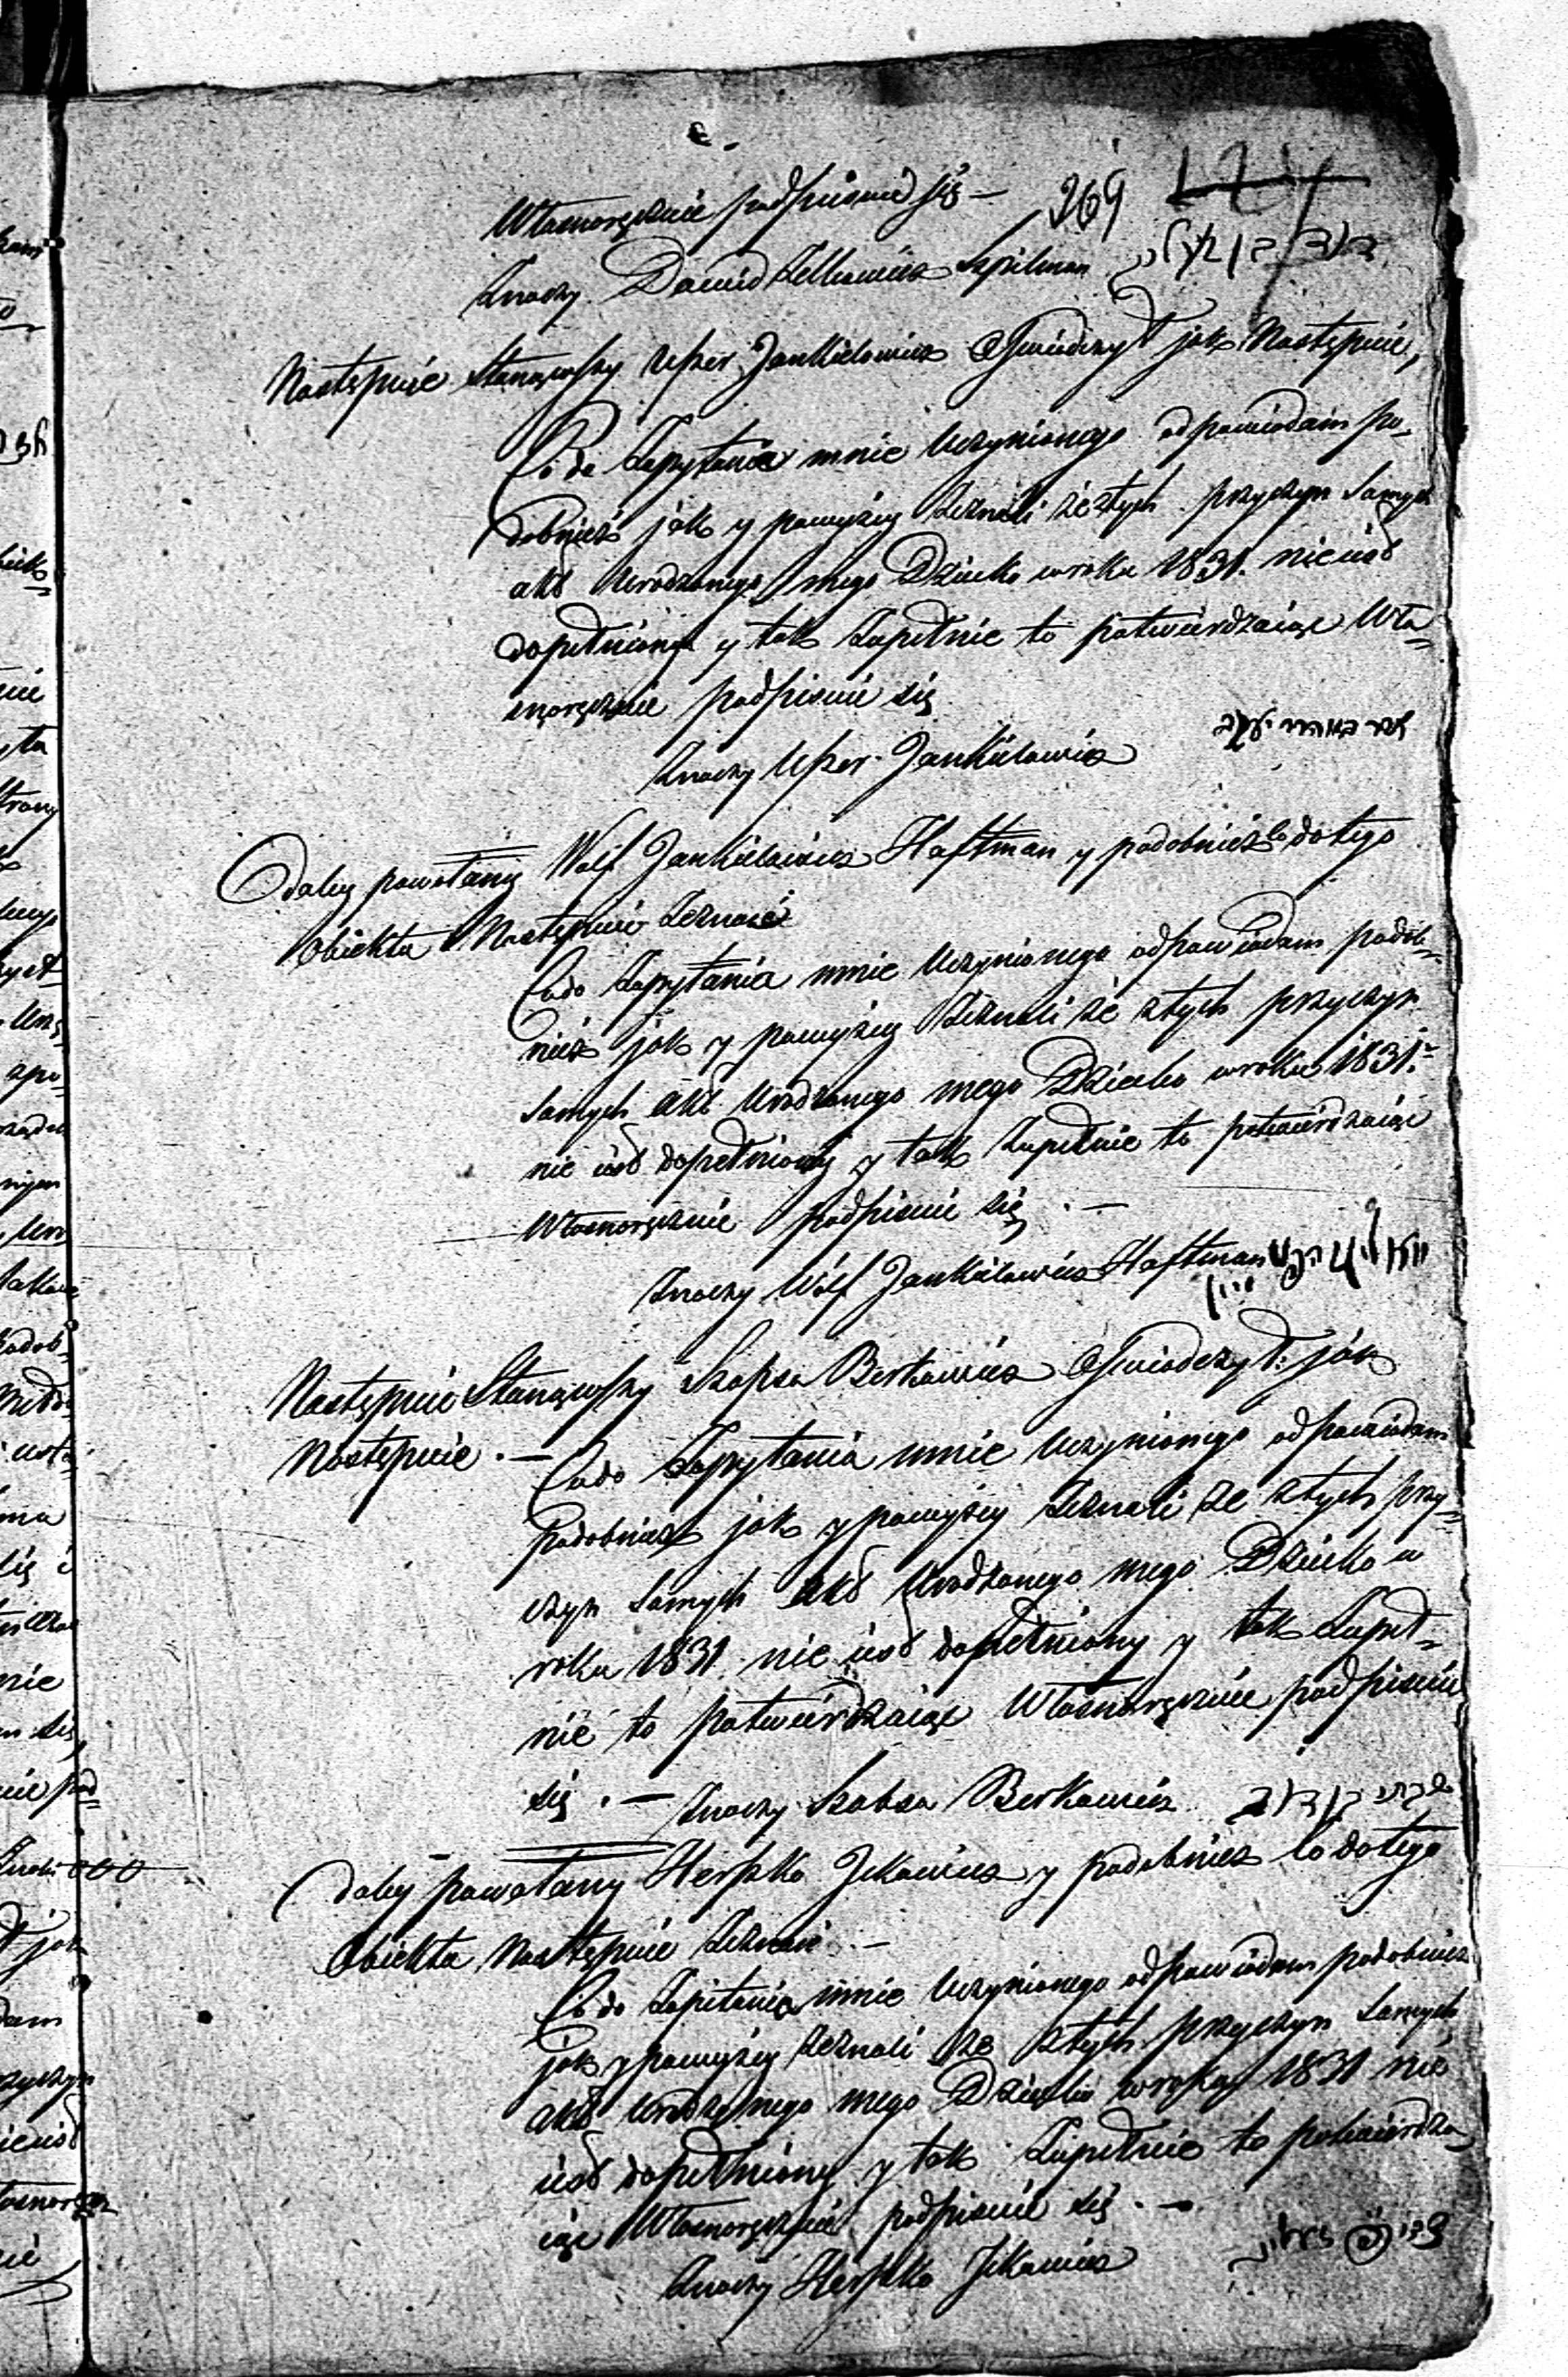 Własnoręcznie podpisuie się —
269
Znaczy Dawid Zelkowicz Szpilman
Następnie Stanąwszy Uszer Jankielowicz Oświadczył jak Następuie,
Co do Zapytania mnie Uczynionego odpowiadam po-
dobnież jak y powyżey Zeznali że ztych przyczyn Samych
akt Urodzonego mego Dziecka w roku 1831. nie iest
dopełniony y tak Zupełnie to potwierdzaiąc Wła-
snoręcznie podpisuie się
Znaczy Uszer Jankielowicz
Daley powołany Wolf Jankielowicz Haftman y podobnież Co do tego
Obiektu Następnie Zeznaie
Co do Zapytania mnie Uczynionego odpowiadam podob-
nież jak y powyżey Zeznali że ztych przyczyn
Samych akt Urodzonego mego Dziecka w roku 1831.
nie iest dopełniony y tak Zupełnie to potwierdzaiąc
Własnoręcznie podpisuie się . —
Znaczy Wolf Jankielowicz Haftman
Następnie Stanąwszy Szapsa Berkowicz Oświadczył: jak
Następuie . —
Co do Zapytania mnie Uczynionego odpowiadam
podobnież jak y powyżey Zeznali że ztych przy-
czyn Samych akt Urodzonego mego Dziecka w
roku 1831 nie iest dopełniony y tak Zupeł-
nie to potwierdzaiąc Własnoręcznie podpisuie
się . — Znaczy Szabsa Berkowicz
Daley powołany Herszko Jckowicz y podobnież Co do tego
Obiektu Następnie Zeznaie . —
Co do Zapitania mnie Uczynionego odpowiadam podobnież
jak y powyżey Zeznali że ztych przyczyn Samych
akt Urodzonego mego Dziecka w roku 1831 nie
iest dopełniony y tak Zupełnie to potwierdza-
iąc Własnoręcznie podpisuie się . —
Znaczy Herszko Jckowicz